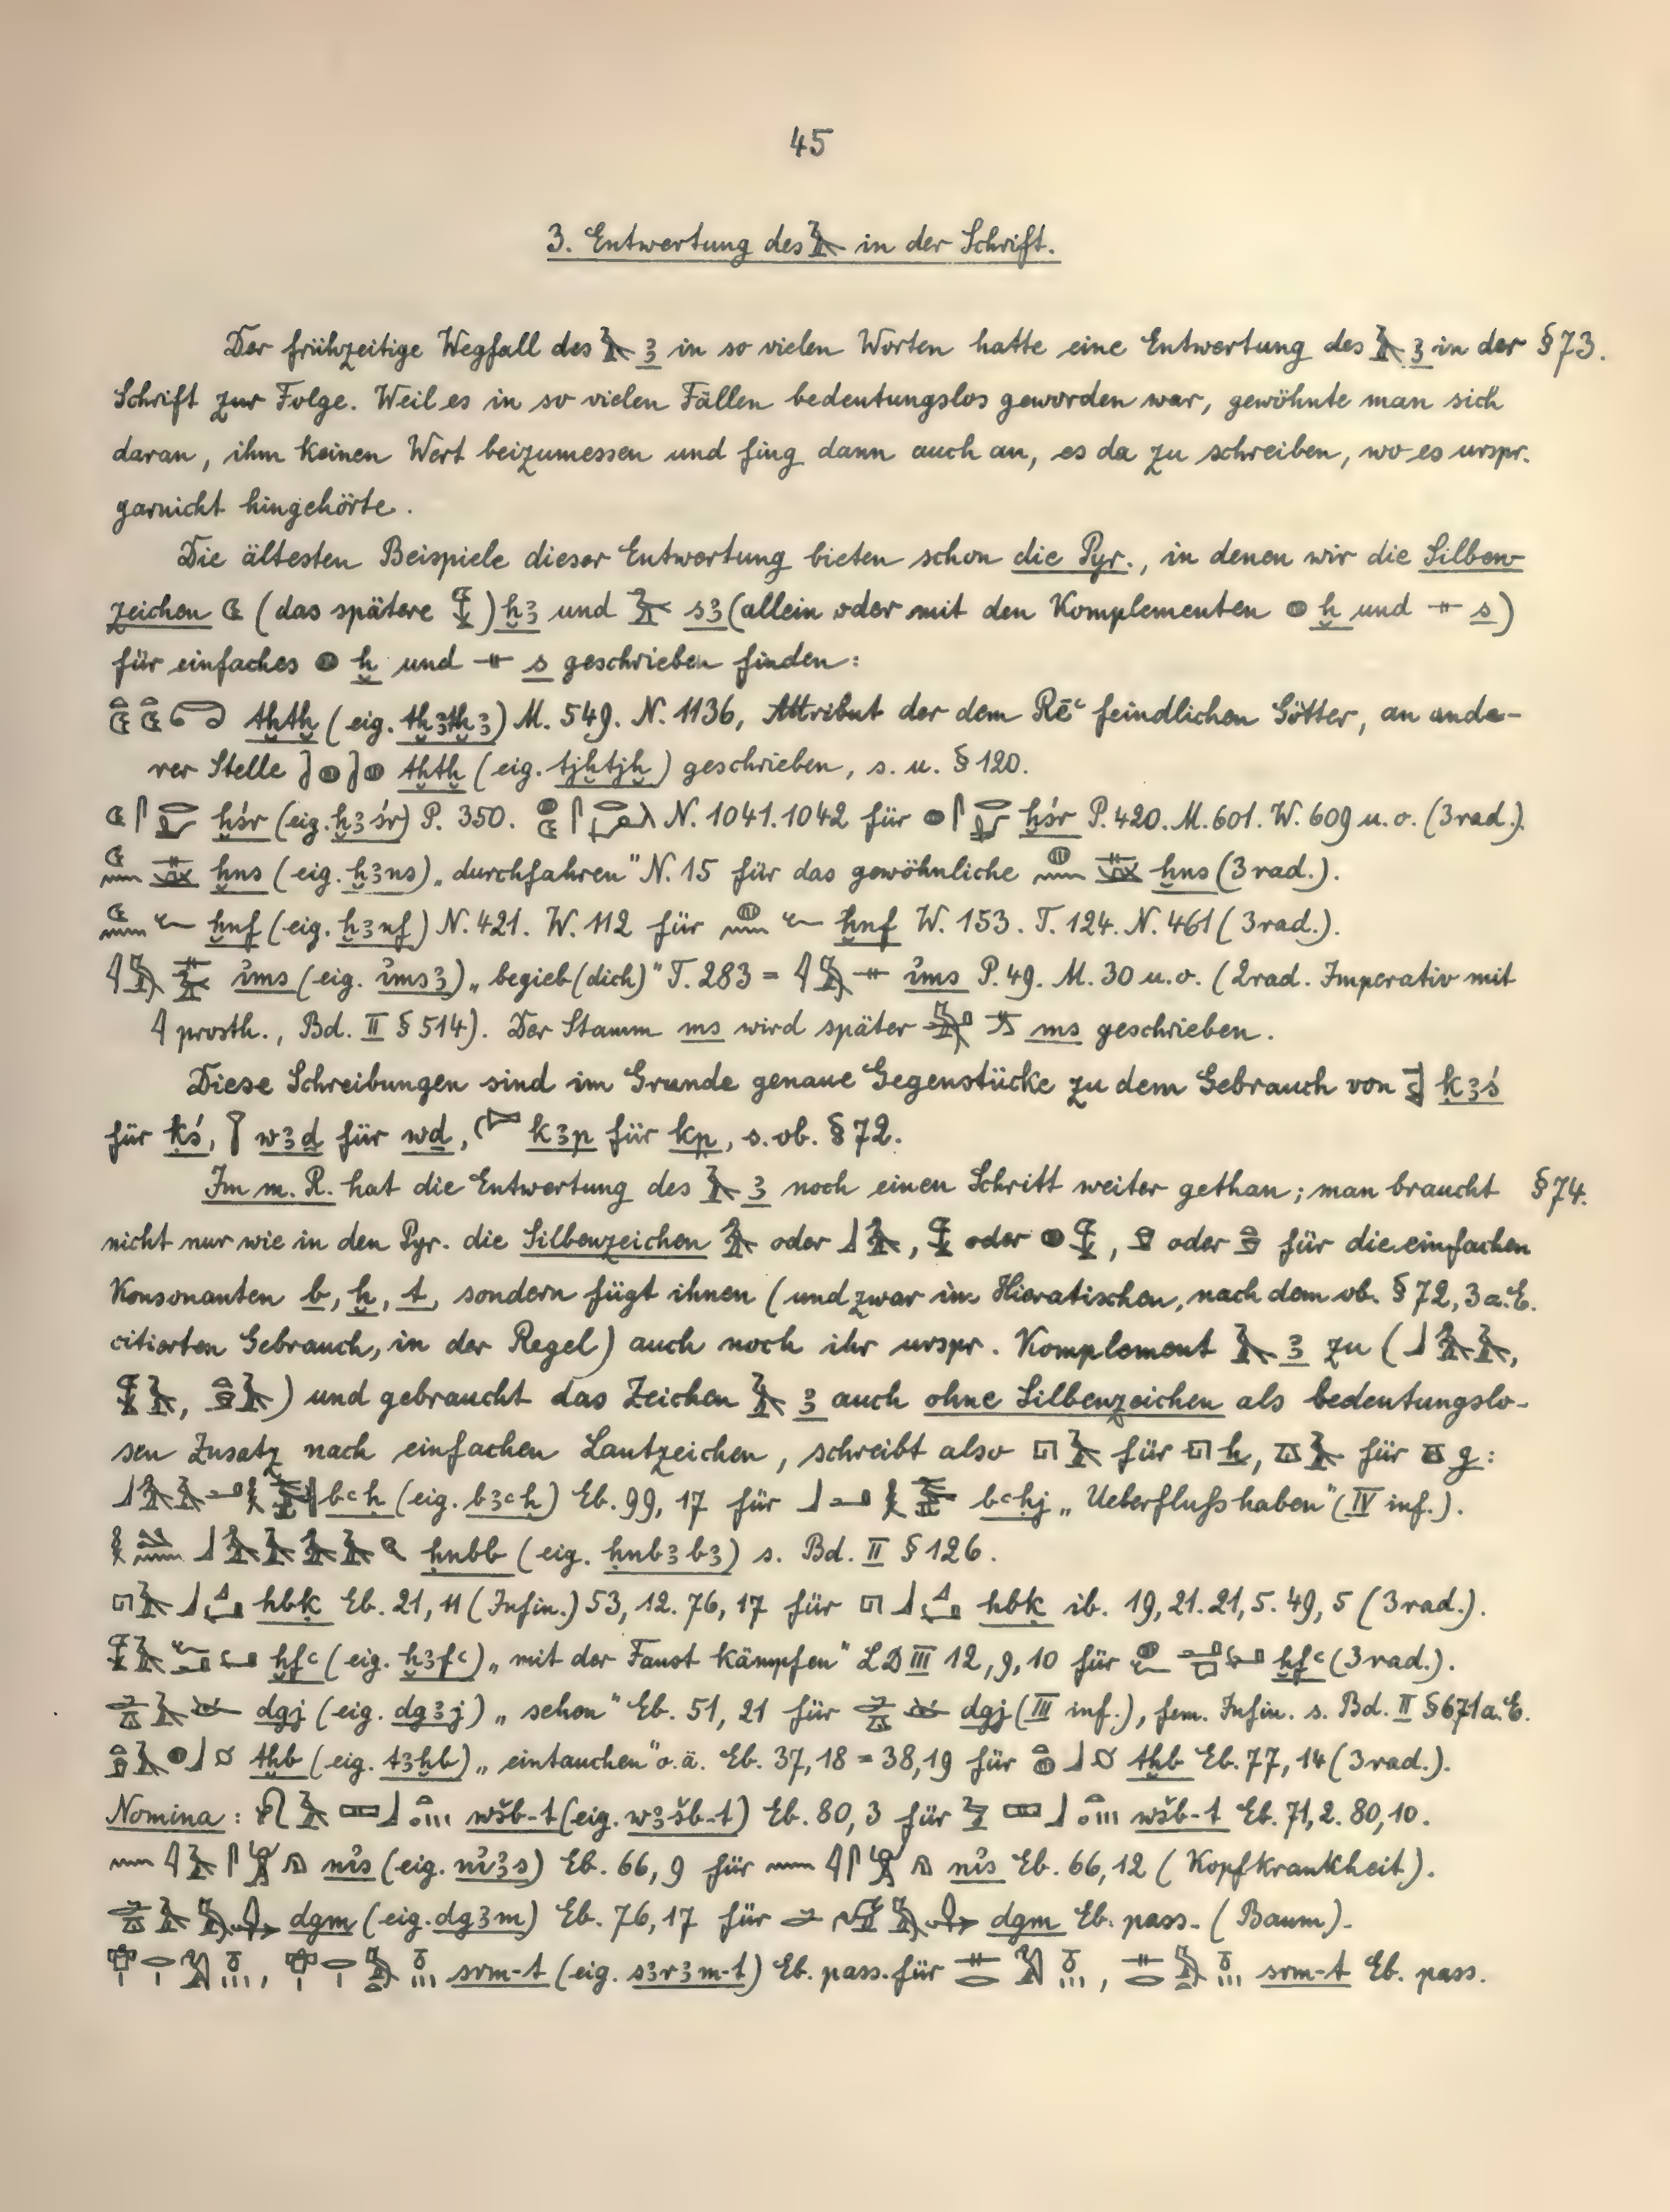 45
3. Entwertung des 𓄿 in der Schrift.
Der frühzeitige Wegfall des 𓄿 ꜣ in so vielen Worten hatte eine Entwertung des 𓄿 ꜣ in der § 73.
Schrift zur Folge. Weil es in so vielen Fällen bedeutungslos geworden war, gewöhnte man sich
daran, ihm keinen Wert beizumessen und fing dann auch an, es da zu schreiben, wo es urspr.
garnicht hingehörte.
Die ältesten Beispiele dieser Entwertung bieten schon die Pyr., in denen wir die Silben-
zeichen (das spätere 𓆼) ḫꜣ und sꜣ (allein oder mit den Komplementen 𓐍 ḫ und 𓊃 s)
für einfaches 𓐍 ḫ und 𓊃 s geschrieben finden:
tḫtḫ (eig. tḫꜣtḫꜣ) M. 549. N. 1136, Attribut der dem Rēꜥ feindlichen Götter, an ande-
rer Stelle tḫtḫ (eig. tjḫtjḫ) geschrieben, s. u. § 120.
ḫśr (eig. ḫꜣśr) P. 350. N. 1041. 1042 für ḫśr P. 420. M. 601. W. 609 u. o. (3rad.).
ḫns (eig. ḫꜣns) „durchfahren" N. 15 für das gewöhnliche ḫns (3rad.).
ḫnf (eig. ḫꜣnf) N. 421. W. 112 für ḫnf W. 153. T. 124. N. 461 (3rad.).
ꞽms (eig. ꞽmsꜣ) „begieb (dich)" T. 283 = 𓇋𓅓𓊃 ꞽms P. 49. M. 30 u. o. (2rad. Imperativ mit
𓇋 prosth., Bd. II § 514). Der Stamm ms wird später ms geschrieben.
Diese Schreibungen sind im Grunde genaue Gegenstücke zu dem Gebrauch von ḳꜣś
für ḳś, 𓇅 wꜣd für wd, kꜣp für kp, s. ob. § 72.
Im m. R. hat die Entwertung des 𓄿 ꜣ noch einen Schritt weiter gethan; man braucht § 74.
nicht nur wie in den Pyr. die Silbenzeichen 𓅡 oder 𓃀𓅡, 𓆼 oder 𓐍𓆼, oder für die einfachen
Konsonanten b, ḫ, t, sondern fügt ihnen (und zwar im Hieratischen, nach dem ob. § 72, 3 a. E.
citierten Gebrauch, in der Regel) auch noch ihr urspr. Komplement 𓄿 ꜣ zu (𓃀𓅡𓄿,
𓆼𓄿, 𓄿) und gebraucht das Zeichen 𓄿 ꜣ auch ohne Silbenzeichen als bedeutungslo-
sen Zusatz nach einfachen Lautzeichen, schreibt also 𓉔𓄿 für 𓉔 h, 𓎼𓄿 für 𓎼 g:
bꜥḥ (eig. bꜣꜥḥ) Eb. 99, 17 für bꜥḥj „Ueberfluſs haben" (IV inf.).
ḥnbb (eig. ḥnbꜣbꜣ) s. Bd. II § 126.
hbḳ Eb. 21, 11 (Infin.) 53, 12. 76, 17 für hbḳ ib. 19, 21. 21, 5. 49, 5 (3rad.).
ḫfꜥ (eig. ḫꜣfꜥ) „mit der Faust kämpfen" LD III 12, 9, 10 für ḫfꜥ (3rad.).
dgj (eig. dgꜣj) „sehen" Eb. 51, 21 für dgj (III inf.), fem. Infin. s. Bd. II § 671 a. E.
tḫb (eig. tꜣḫb) „eintauchen" o. ä. Eb. 37, 18 = 38, 19 für tḫb Eb. 77, 14 (3rad.).
Nomina: wšb-t (eig. wꜣšb-t) Eb. 80, 3 für wšb-t Eb. 71, 2. 80, 10.
nꞽs (eig. nꞽꜣs) Eb. 66, 9 für nꞽs Eb. 66, 12 (Kopfkrankheit).
dgm (eig. dgꜣm) Eb. 76, 17 für dgm Eb. pass. (Baum).
srm-t (eig. sꜣrꜣm-t) Eb. pass. für srm-t Eb. pass.